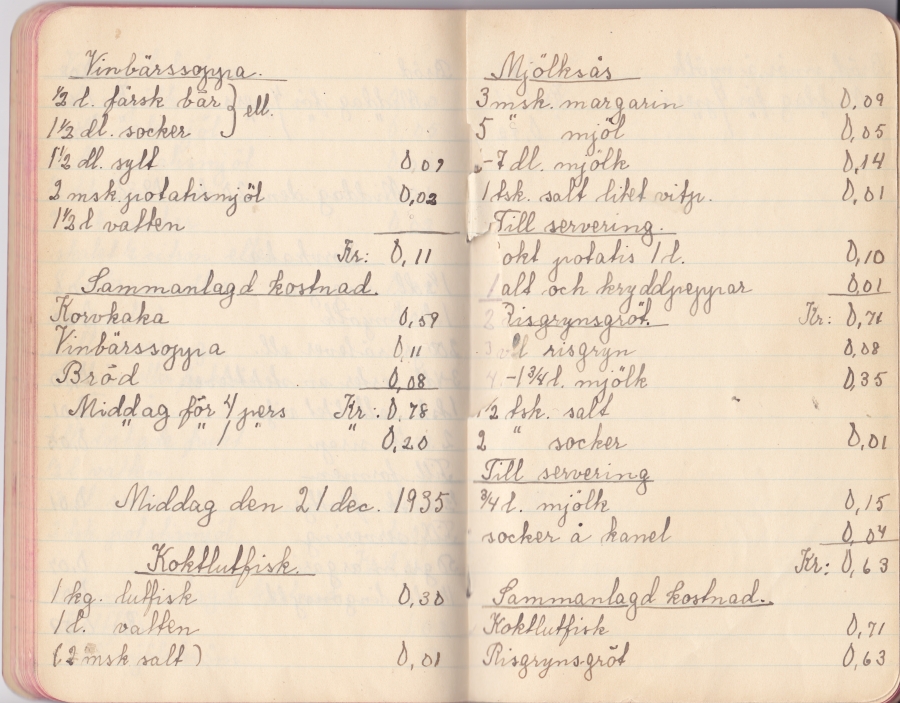 Vinbärssoppa.
1/2 l. färsk bär } ell.
1 1/2 dl. socker
1 1/2 dl. sylt 0,09
2 msk. potatismjöl 0,02
1 1/2 l vatten
Kr: 0,11
Sammanlagd kostnad.
Korvkaka 0,59
Vinbärssoppa 0,11
Bröd 0,08
Middag för 4 pers Kr: 0,78
" " 1 " " 0,20
Middag den 21 dec. 1935
Koktlutfisk.
1 kg. lutfisk 0,30
1 l. vatten
(2 msk salt) 0,01
Mjölksås
3 msk. margarin 0,09
5 " mjöl 0,05
-7 dl. mjölk 0,14
1 tsk. salt litet vitp. 0,01
Till servering.
okt potatis 1 l. 0,10
alt och kryddpeppar 0,01
Kr: 0,71
Risgrynsgröt.
risgryn 0,08
-1 3/4 l. mjölk 0,35
1/2 tsk. salt
2 " socker 0,01
Till servering
3/4 l. mjölk 0,15
socker å kanel 0,04
Kr: 0,63
Sammanlagd kostnad.
Koktlutfisk 0,71
Risgrynsgröt 0,63